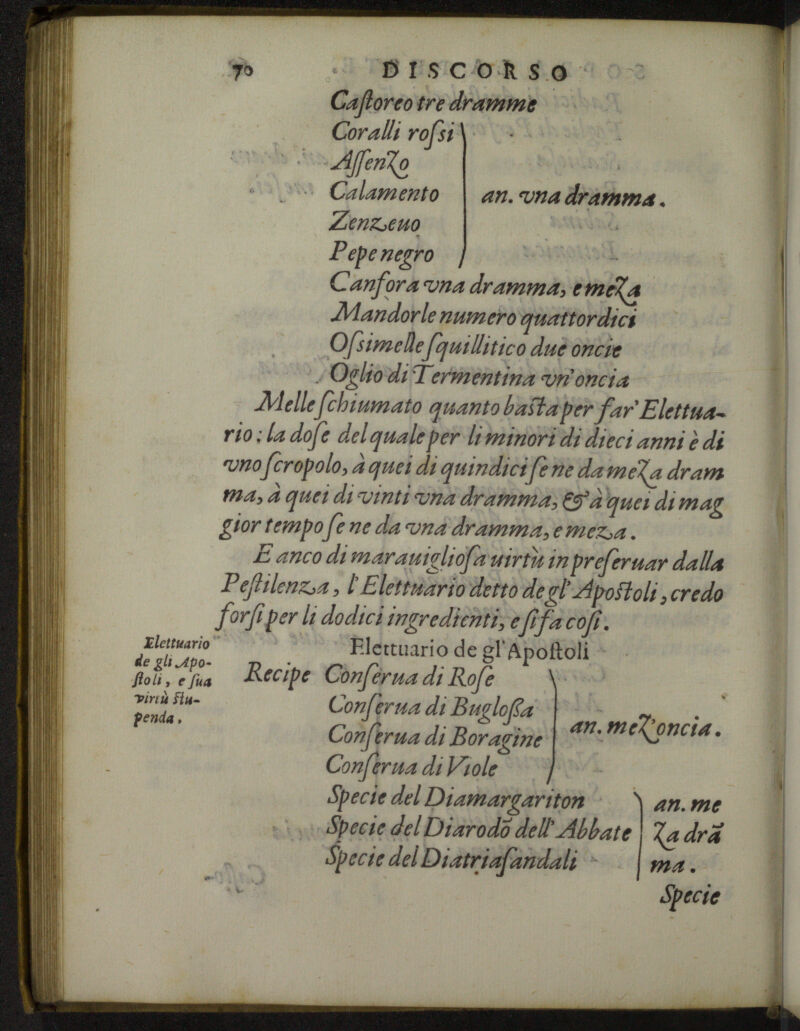 70 DISCORSO
Caſtoreo tre dramme
Coralli roſsi
Aſſenzo
Calamento an. vna dramma.
Zenzeuo
Pepe negro
Canfora vna dramma, e meza
Mandorle numero quattordici
Oſsimelle ſquillitico due oncie
Oglio di Termentina vn'oncia
Melle ſchiumato quanto baſta per far' Elettua-
rio: la doſe del quale per li minori di dieci anni è di
vno ſcropolo, à quei di quindici ſe ne da meza dram
ma, à quei di vinti vna dramma, & à quei di mag
gior tempo ſe ne da vna dramma, e meza.
E anco di marauiglioſa uirtù in preſeruar dalla
Peſtilenza, l'Elettuario detto de gl' Apoſtoli, credo
forſi per li dodici ingredienti, e ſi fa coſi.
Elettuario
de gli Apo-
ſtoli, e ſua
virtù ſtu-
penda.
Elettuario de gl' Apoſtoli
Recipe Conſerua di Roſe
Conſerua di Bugloſſa
Conſerua di Boragine an. mez'oncia.
Conſerua di Viole
Specie del Diamargariton an. me
Specie del Diarodõ dell' Abbate za drã
Specie del Diatriaſandali ma.
Specie